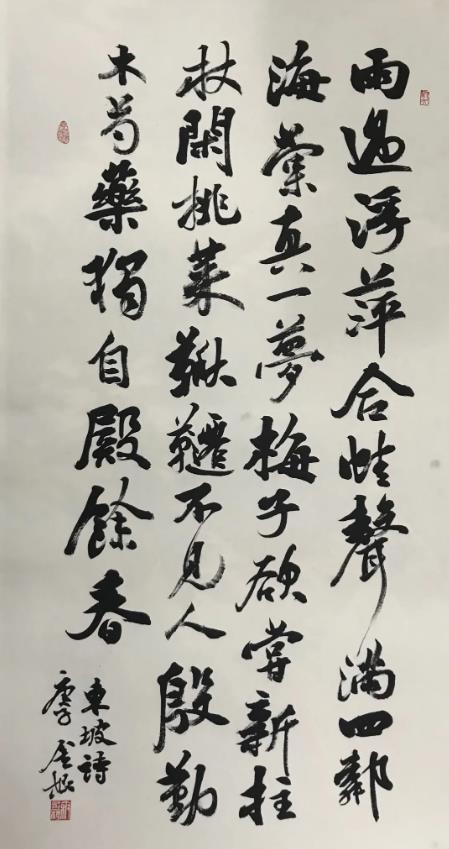 雨過浮萍合蛙聲滿四鄰
海棠真一夢梅子欲嘗新拄
杖閑挑菜鞦韆不見人殷勤
木芍藥獨自殿餘春
東坡詩